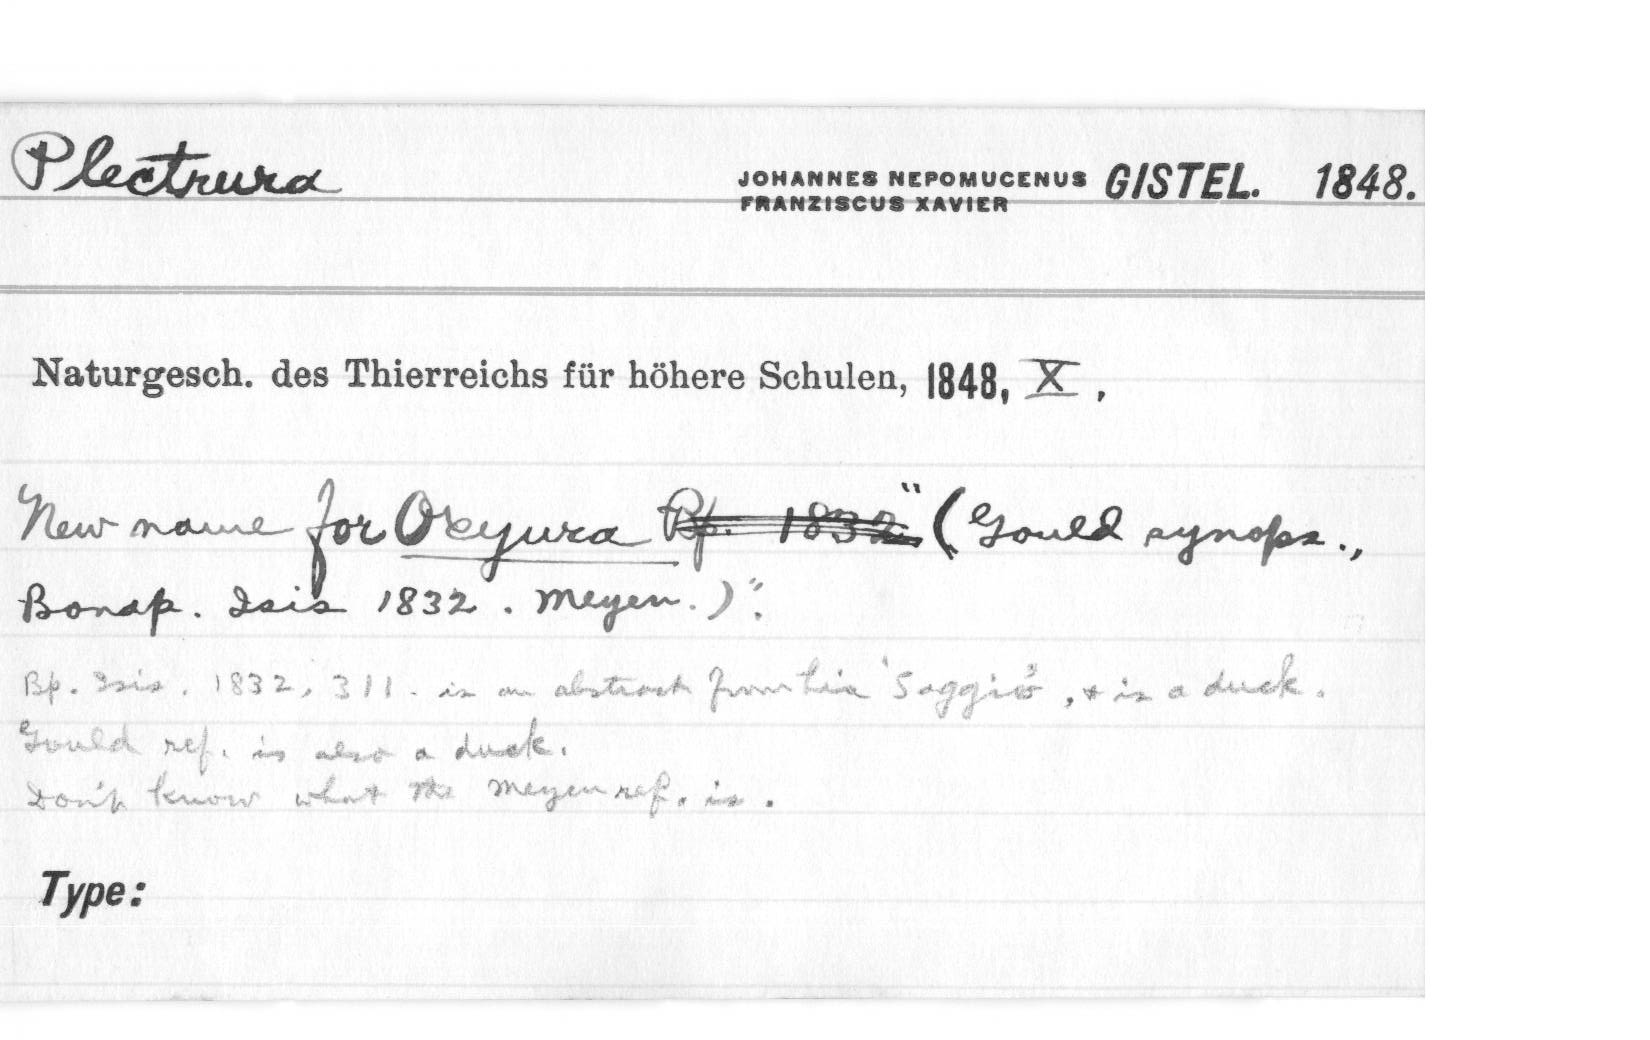 Plectrura JOHANNES NEPOMUCENUS FRANZISCUS XAVIER GISTEL. 1848.
Naturgesch. des Thierreichs für höhere Schulen, 1848, X,
New name for Oxyura Bp. 1832 "(Gould synops.,
Bonap. Isis 1832. Meyen.)".
Bp. Isis. 1832, 311. is an abstract from his 'Saggio', & is a duck.
Gould ref. is also a duck.
Don't know what the Meyen ref. is.
Type: